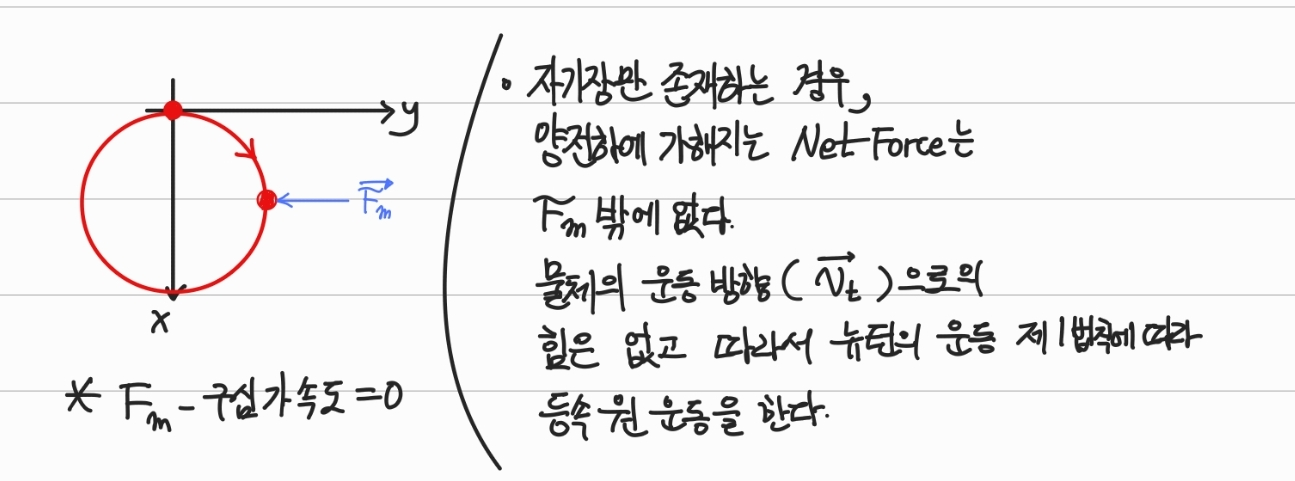 y
F_m
x
* F_m - 구심가속도 = 0
• 자기장만 존재하는 경우,
양전하에 가해지는 Net Force는
F_m 밖에 없다.
물체의 운동 방향 ( V_t ) 으로의
힘은 없고 따라서 뉴턴의 운동 제1법칙에 따라
등속 원 운동을 한다.